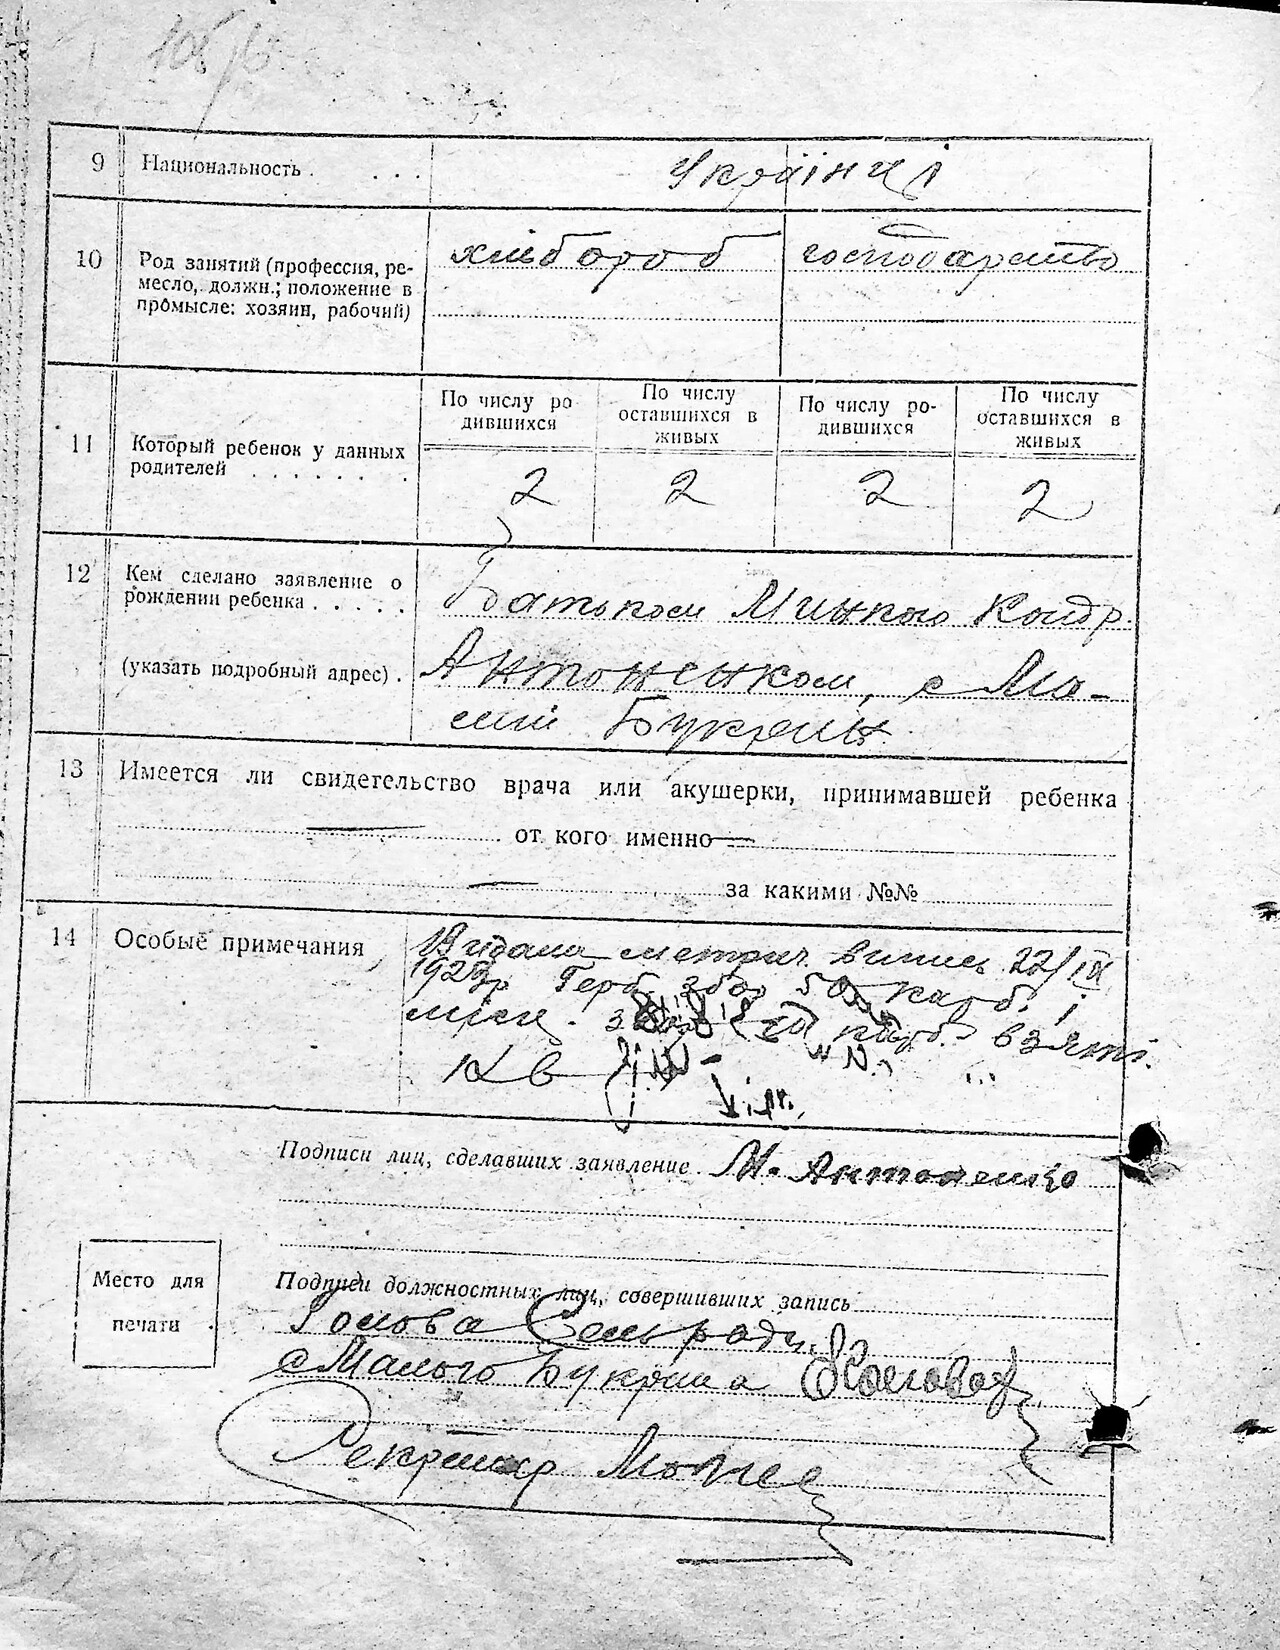 9 Национальность . . . . українці
10 Род занятий (профессия, ре-
месло, должн.; положение в
промысле: хозяин, рабочий)
хлібороб господарство
11 Который ребенок у данных
родителей . . . . . . . .
По числу ро
дившихся
По числу
оставшихся в
живых
По числу ро-
дившихся
По числу
оставшихся в
живых
2 2 2 2
12 Кем сделано заявление о
рождении ребенка . . . . .
(указать подробный адрес) .
Батьком Кондр.
Антоненком, с Ма-
лий Букрин
13 Имеется ли свидетельство врача или акушерки, принимавшей ребенка
— от кого именно —
— за какими №№
14 Особые примечания
Видана метрич. випись 22/
192 р Герб. збор 50 карб. і
карб. взяті.
Подписи лиц, сделавших заявление М. Антоненко
Место для
печати
Подписи должностных лиц, совершивших запись
Голова Сельради
с Малого Букрина
Секретар